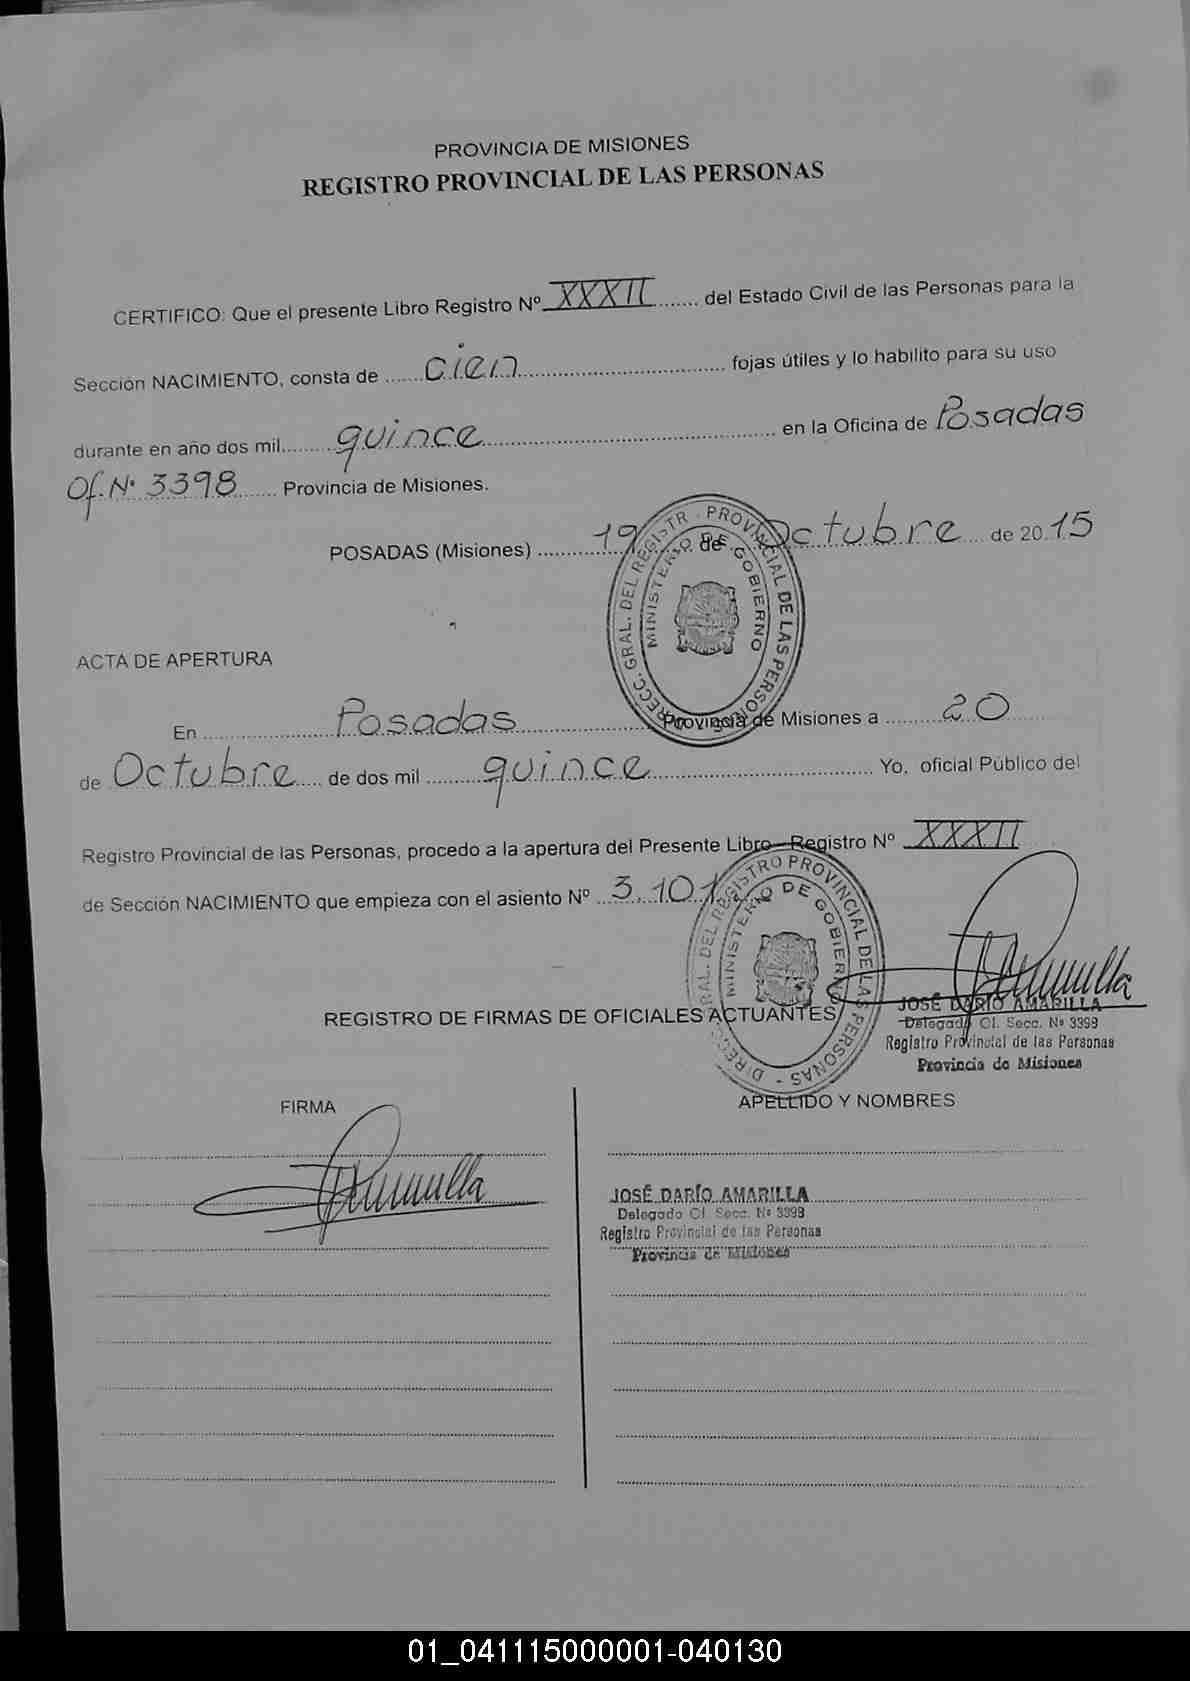 PROVINCIA DE MISIONES
REGISTRO PROVINCIAL DE LAS PERSONAS
CERTIFICO: Que el presente Libro Registro Nº XXXII del Estado Civil de las Personas para la
Sección NACIMIENTO, consta de cien fojas útiles y lo habilito para su uso
durante en año dos mil quince en la Oficina de Posadas
Of. Nº 3398 Provincia de Misiones.
POSADAS (Misiones) 19 de Octubre de 2015
DIRECC. GRAL. DEL REGISTR. PROVINCIAL DE LAS PERSONAS
MINISTERIO DE GOBIERNO
ACTA DE APERTURA
En Posadas Provincia de Misiones a 20
de Octubre de dos mil quince Yo, oficial Público del
Registro Provincial de las Personas, procedo a la apertura del Presente Libro Registro Nº XXXII
de Sección NACIMIENTO que empieza con el asiento Nº 3.101
DIRECC. GRAL. DEL REGISTRO PROVINCIAL DE LAS PERSONAS
MINISTERIO DE GOBIERNO
JOSÉ DARÍO AMARILLA
Delegado Cl. Secc. Nº 3398
Registro Provincial de las Personas
Provincia de Misiones
REGISTRO DE FIRMAS DE OFICIALES ACTUANTES
FIRMA APELLIDO Y NOMBRES
JOSÉ DARÍO AMARILLA
Delegado Cl. Secc. Nº 3398
Registro Provincial de las Personas
Provincia de Misiones
01_041115000001-040130